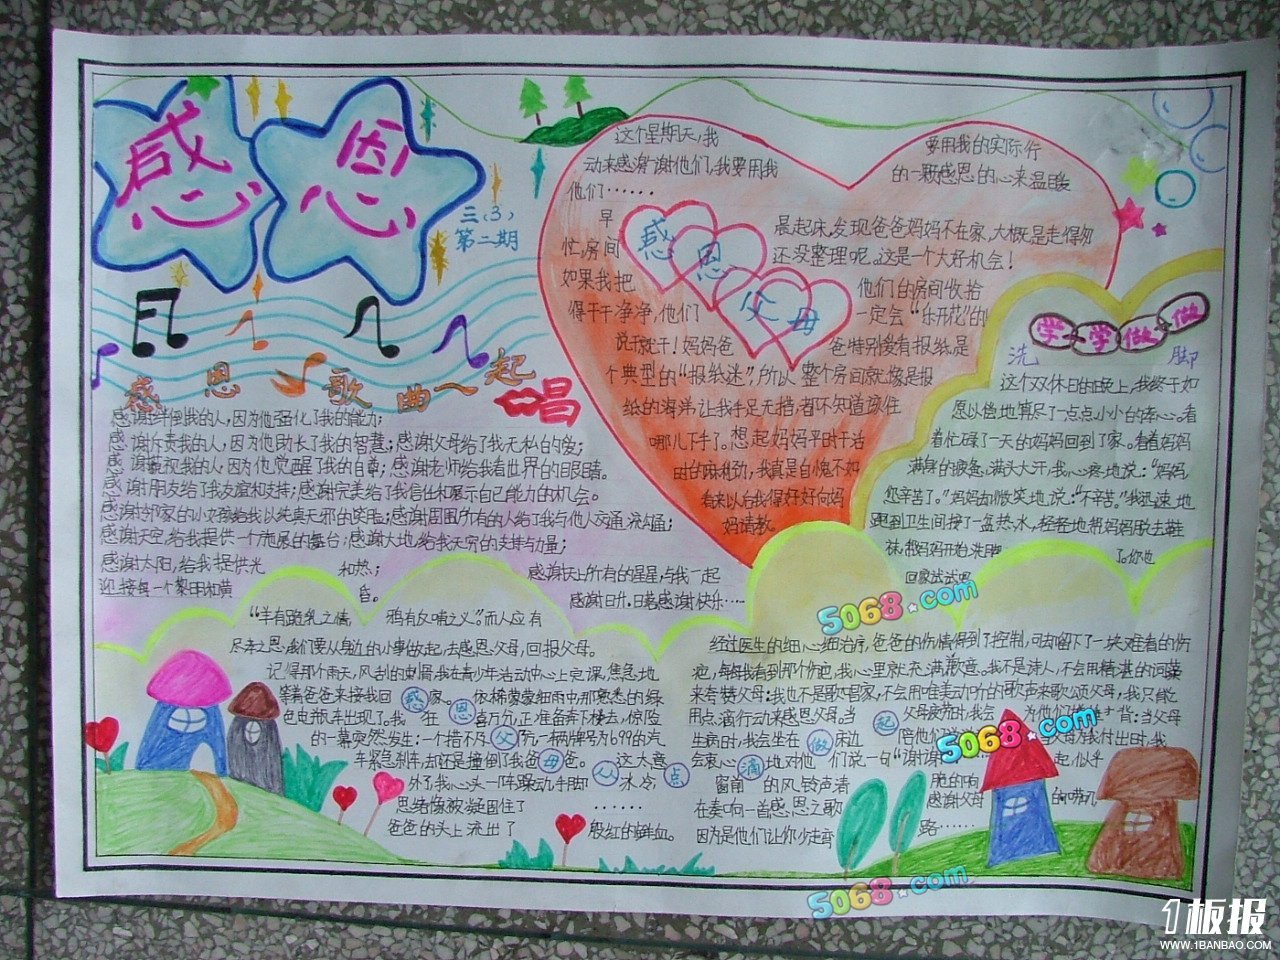 感恩
三(3)
第二期
感恩歌曲一起唱
感谢绊倒我的人,因为他强化了我的能力;
感谢斥责我的人;因为他助长了我的智慧;感谢父母给了我无私的爱;
感谢藐视我的人因为他觉醒了我的自尊;感谢老师给我看世界的眼睛。
感谢朋友给了我友谊和支持;感谢完美给了我信任和展示自己能力的机会。
感谢邻家的小女孩给我以纯真无邪的笑脸;感谢周围所有的人给了我与他人交通
感谢天空,给我提供一个施展的舞台;感谢大地,给我无穷的支持与力量;
感谢太阳,给我提供光和热;感谢天上所有的星星,与我一起
迎接每一个黎明和黄昏。感谢日升,日落感谢快乐……
这个星期天,我要用我的实际行
动来感谢谢他们,我要用我的一颗感恩的心来温暖
他们……
感恩父母
早晨起床,发现爸爸妈妈不在家,大概是走得匆
忙房间还没整理呢。这是一个大好机会!
如果我把他们的房间收拾
得干干净净,他们一定会“乐开花”的
说干就干!妈妈爸爸特别爱看报纸,是
个典型的“报纸迷”,所以整个房间就像是报
纸的海洋,让我手足无措,都不知道该往
哪儿下手了。想起妈妈平时干活
时的麻利劲,我真是自愧不如
看来以后我得好好向妈
妈请教。
学一学做一做
洗脚
这个双休日的晚上,我终于如
愿以偿地算尽了一点点小小的孝心。看
着忙碌了一天的妈妈回到了家。看着妈妈
满身的疲备。满头大汗,我心疼地说:“妈妈,
您辛苦了。”妈妈却微笑地说:“不辛苦。”我迅速地
跑到卫生间接了一盆热水,轻轻地帮妈妈脱去鞋
袜,帮妈妈开始洗脚
了。你也
回家试试吧
“羊有跪乳之情,鸦有反哺之义”,而人应有
尽孝之恩,我们要从身边的小事做起,去感恩父母,回报父母。
记得那个雨天,风刮的刺骨,我在青少年活动中心上完课,焦急地
等着爸爸来接我回家。依稀蒙蒙细雨中那熟悉的绿
色电瓶车出现了。我狂喜万分,正准备奔下楼去,惊险
的一幕突然发生:一个措不及防,一辆牌号为699的汽
车紧急刹车,却还是撞倒了我爸爸。这大意
外了,我心头一阵躁动手脚冰冷,
思绪像被凝固住了……
爸爸的头上流出了殷红的鲜血。
感恩父母从点滴做起
经过医生的细心治疗,爸爸的伤情得到了控制,可却留下了一块难看的伤
疤,每每我看到那个伤疤,我心里就充满歉意。我不是诗人,不会用精湛的词藻
来夸赞父母;我也不是歌唱家,不会用唯美动听的歌声来歌颂父母,我只能
用点滴行动来感恩父母。当父母疲劳时,我会为他们捶捶背;当父母
生病时,我会坐在床边陪他们
会衷心地对他们说一句“谢谢
窗角的风铃声清脆的响
在奏响一首感恩之歌感谢父母
因为是他们让你少走弯路……
5068.com
5068.com
5068.com
1板报
WWW.1BANBAO.COM